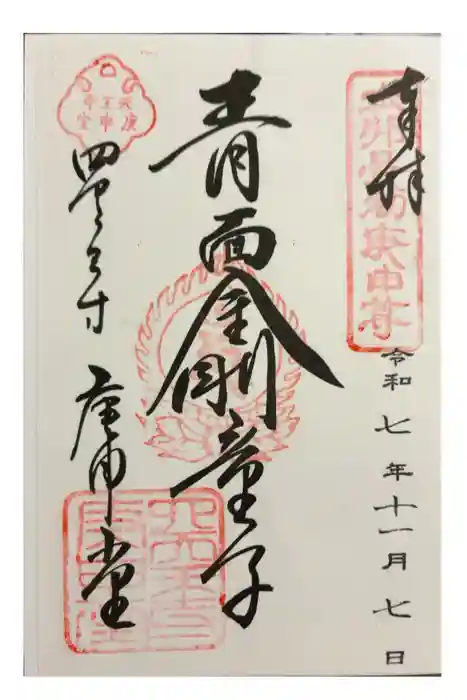 奉拝
令和七年十一月七日
青面金剛童子
四天王寺 庚申堂